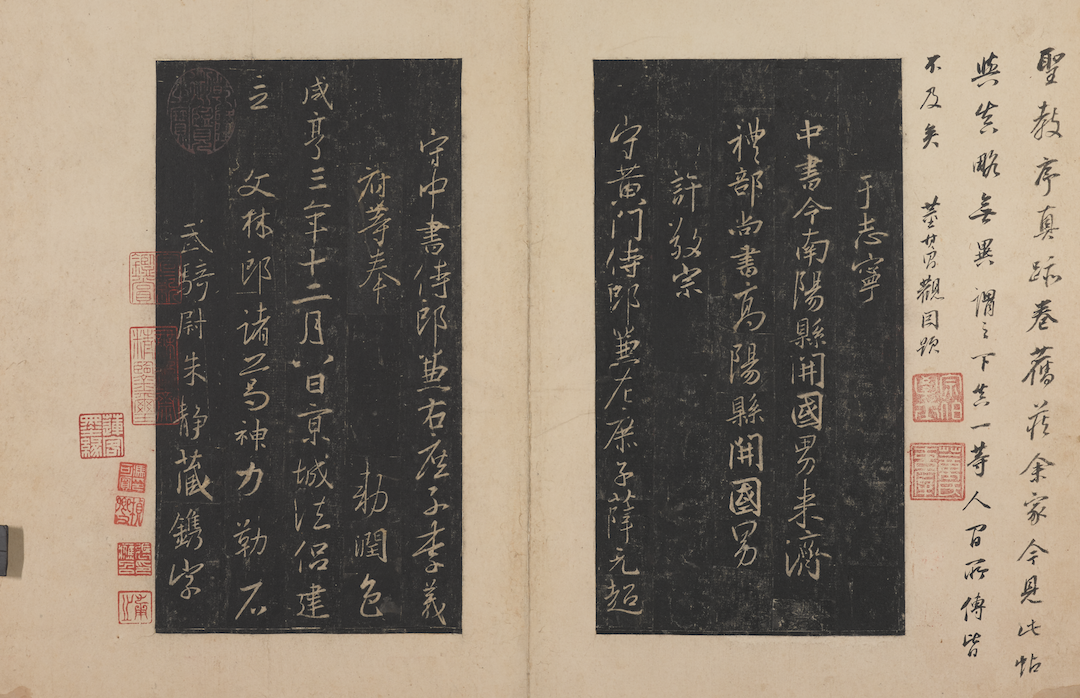 聖教序真跡卷舊藏余家今見此帖
與真略無異謂之下真一等人間所傳皆
不及矣 董其昌觀因題
于志寧
中書令南陽縣開國男来濟
禮部尚書高陽縣開國男
許敬宗
守黃門侍郎兼左庶子薛元超
守中書侍郎兼右庶子李義
府等奉 勅潤色
咸亨三年十二月八日京城法侶建
立
文林郎諸葛神力勒石
武騎尉朱静藏鐫字